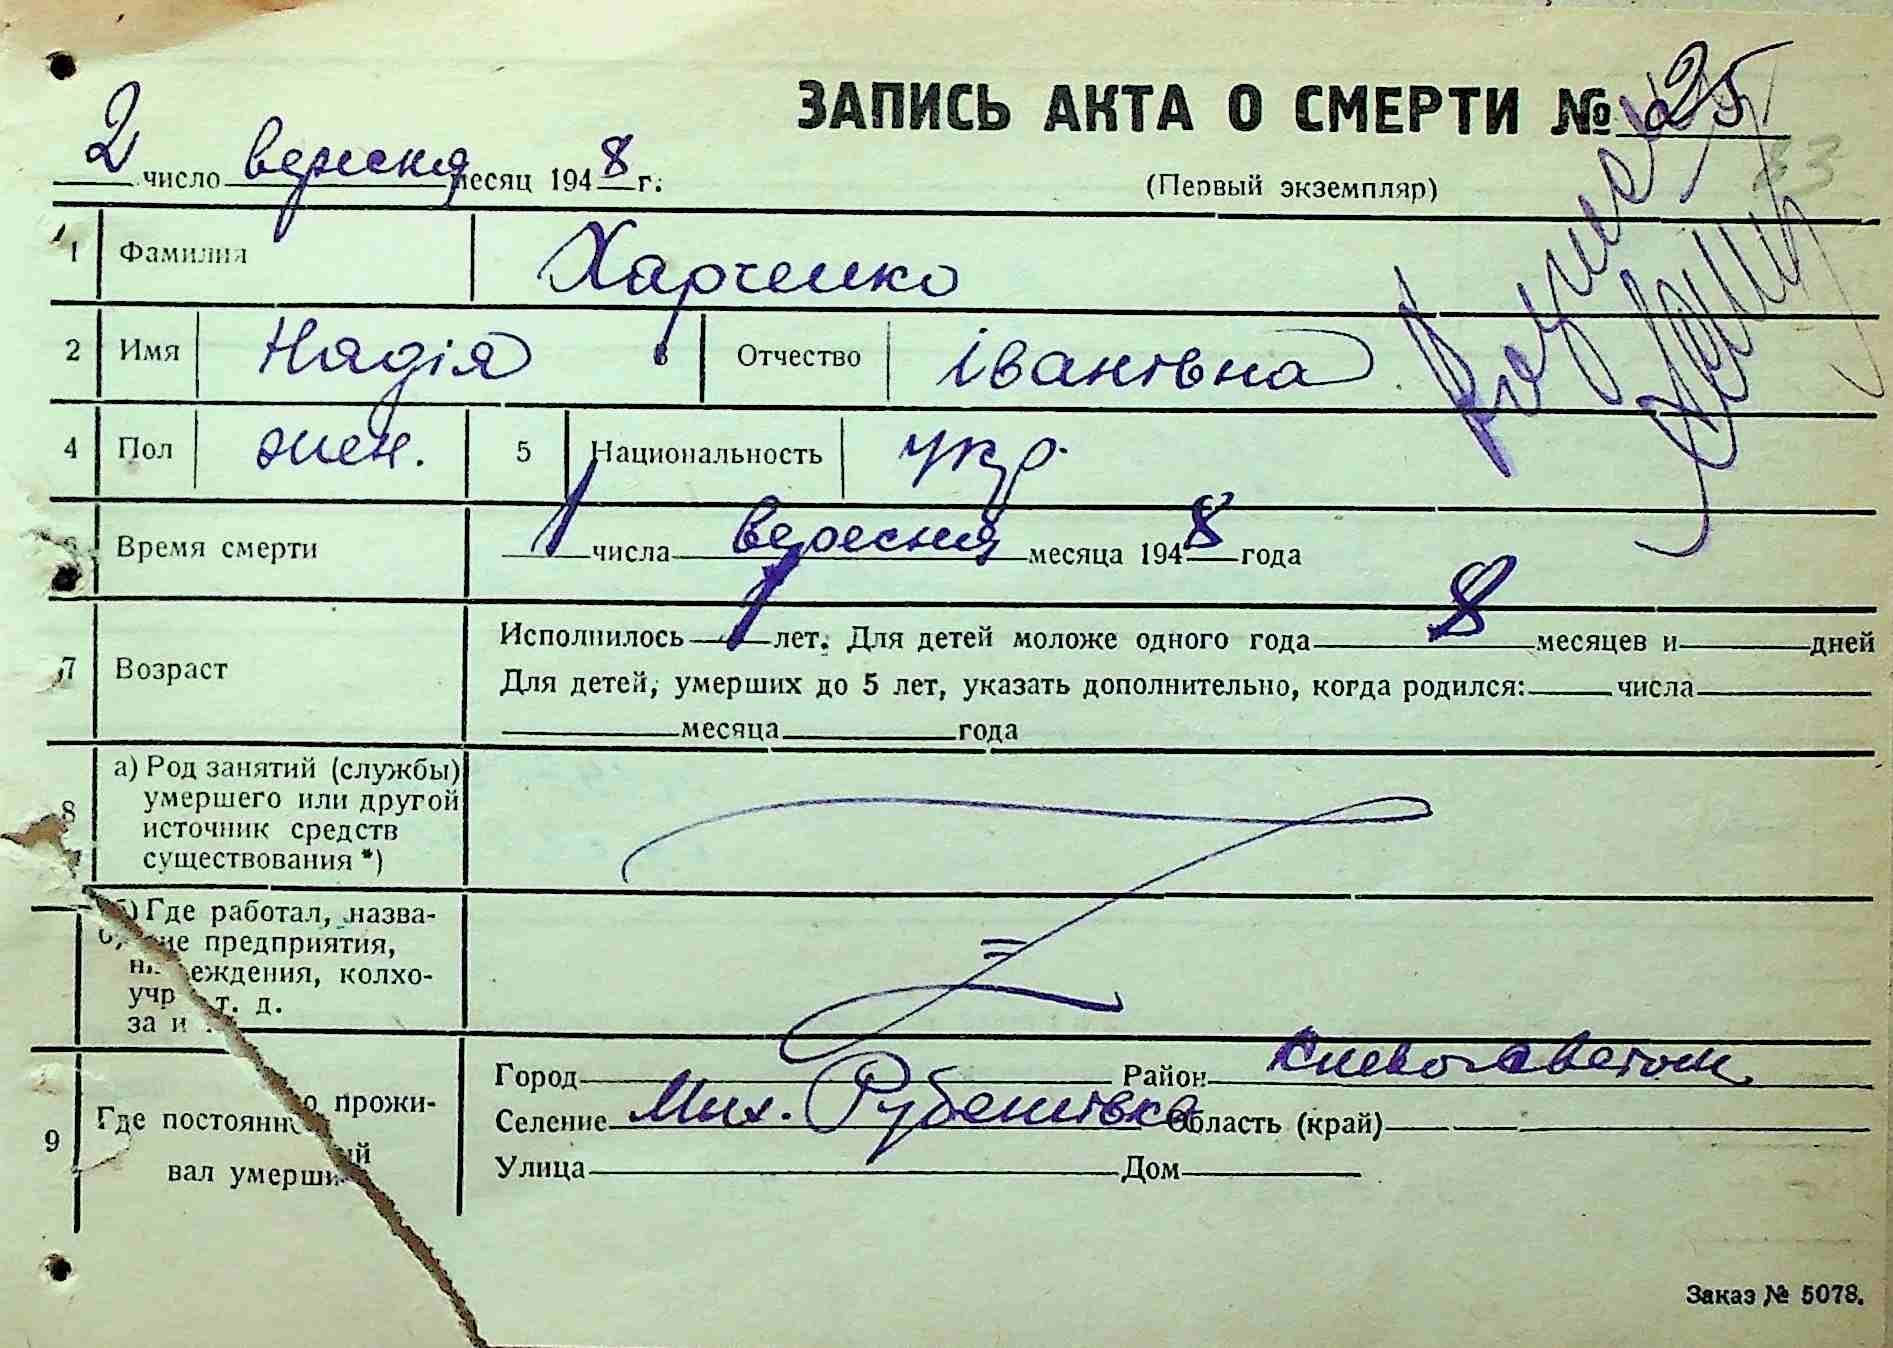 ЗАПИСЬ АКТА О СМЕРТИ № 25
2 число вересня месяц 1948 г.
(Первый экземпляр)
33
1 Фамилия Харченко
2 Имя Надія Отчество Іванівна
4 Пол жен. 5 Национальность укр.
6 Время смерти 1 числа вересня месяца 1948 года
7 Возраст Исполнилось 1 лет. Для детей моложе одного года 8 месяцев и дней
Для детей, умерших до 5 лет, указать дополнительно, когда родился: числа
месяца года
8 а) Род занятий (службы)
умершего или другой
источник средств
существования *)
б) Где работал, назва-
ние предприятия,
учреждения, колхо-
за и т. д.
9 Где постоянно прожи-
вал умерший
Город Район
Селение Мих. Рубенівка Область (край)
Улица Дом
Заказ № 5078.